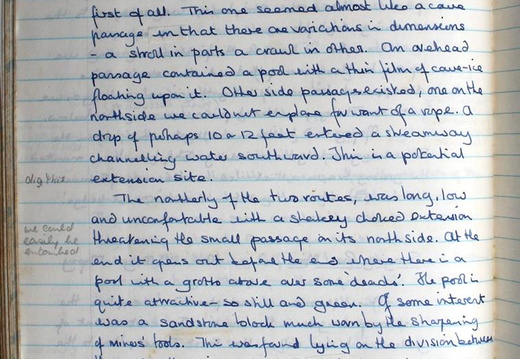 first of all. This one seemed almost like a cave
passage in that there are variations in dimensions
- a stroll in parts a crawl in other. An overhead
passage contained a pool with a thin film of cave-ice
floating upon it. Other side passages existed, one on the
northside we could not explore for want of a rope. A
drop of perhaps 10 or 12 feet entered a streamway
channelling water southward. This is a potential
extension site.
dig this
The northerly of the two routes, was long, low
and uncomfortable with a shakey choked extension
we could
easily be
entombed
threatening the small passage on its north side. At the
end it opens out before the end where there is a
pool with a grotto above over some 'deads'. The pool is
quite attractive - so still and green. Of some interest
was a sandstone block much worn by the sharpening
of miners' tools. This was found lying on the division between